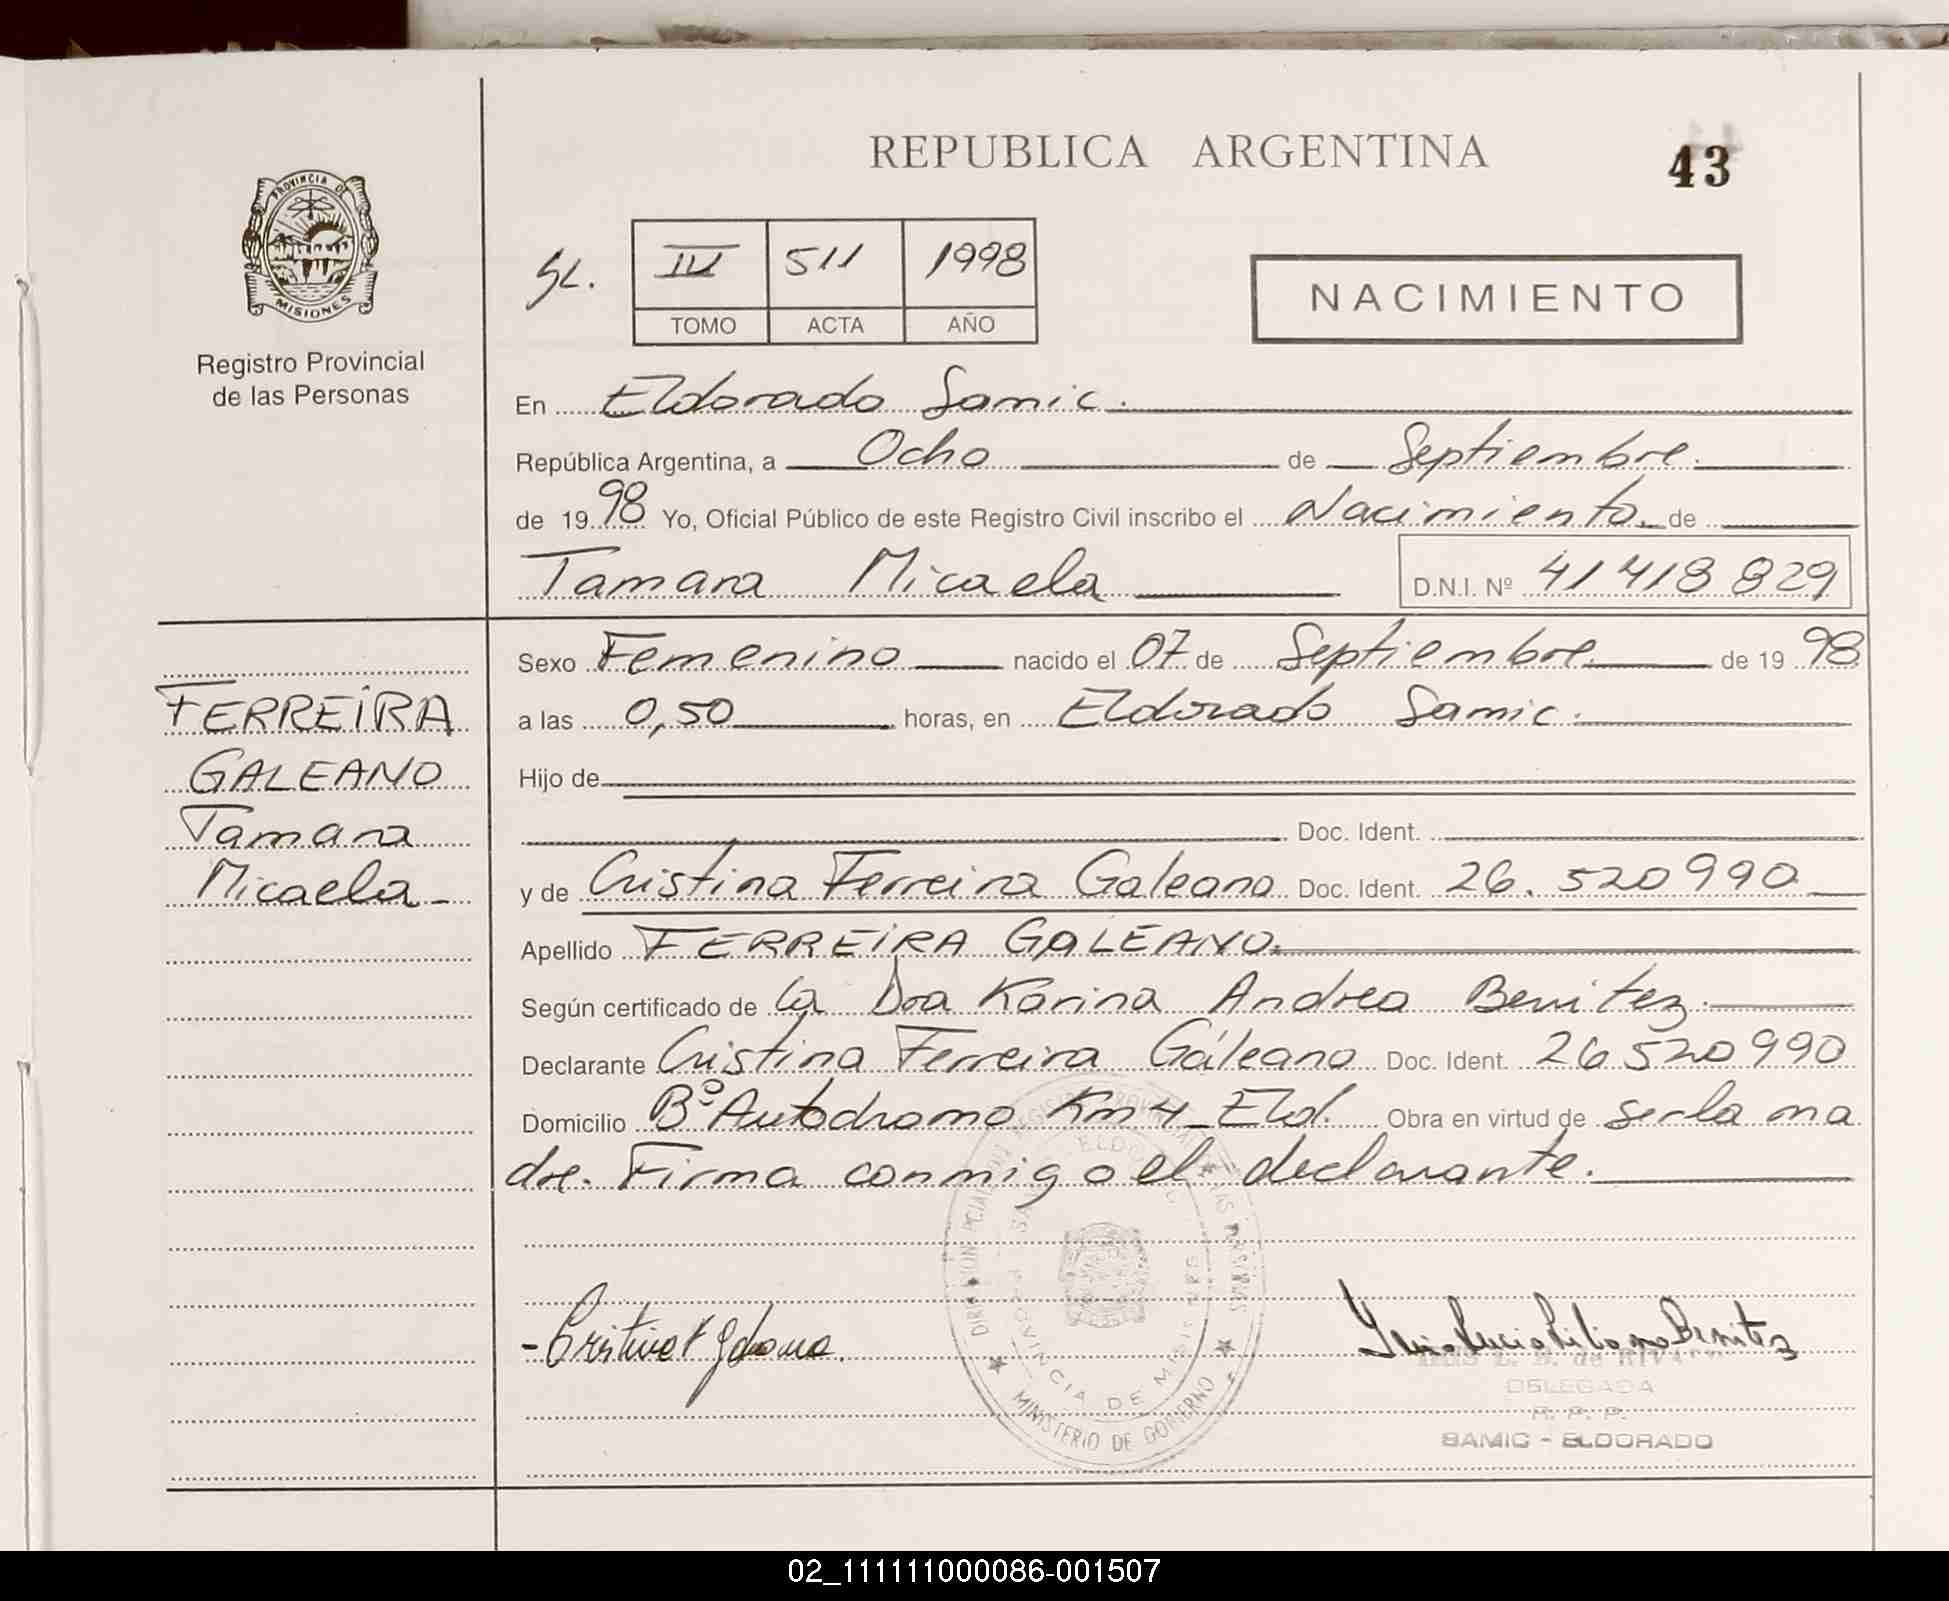 REPUBLICA ARGENTINA
43
PROVINCIA DE
MISIONES
Registro Provincial
de las Personas
SL. IV 511 1998
TOMO ACTA AÑO
NACIMIENTO
En Eldorado Samic.
República Argentina, a Ocho de Septiembre.
de 1998 Yo, Oficial Público de este Registro Civil inscribo el Nacimiento. de
Tamara Micaela D.N.I. Nº 41 418 829
FERREIRA
GALEANO
Tamara
Micaela
Sexo Femenino nacido el 07 de Septiembre de 1998
a las 0,50 horas, en Eldorado Samic.
Hijo de
Doc. Ident.
y de Cristina Ferreira Galeano Doc. Ident. 26.520990
Apellido FERREIRA GALEANO.
Según certificado de la Dra Karina Andrea Benitez.
Declarante Cristina Ferreira Gáleano Doc. Ident. 26520990
Domicilio Bº Autodromo Km 4_Eld. Obra en virtud de ser la ma
dre. Firma conmigo el declarante.
PROVINCIA DE MISIONES
MINISTERIO DE GOBIERNO
DELEGADA
R. P. P.
SAMIC - ELDORADO
02_111111000086-001507